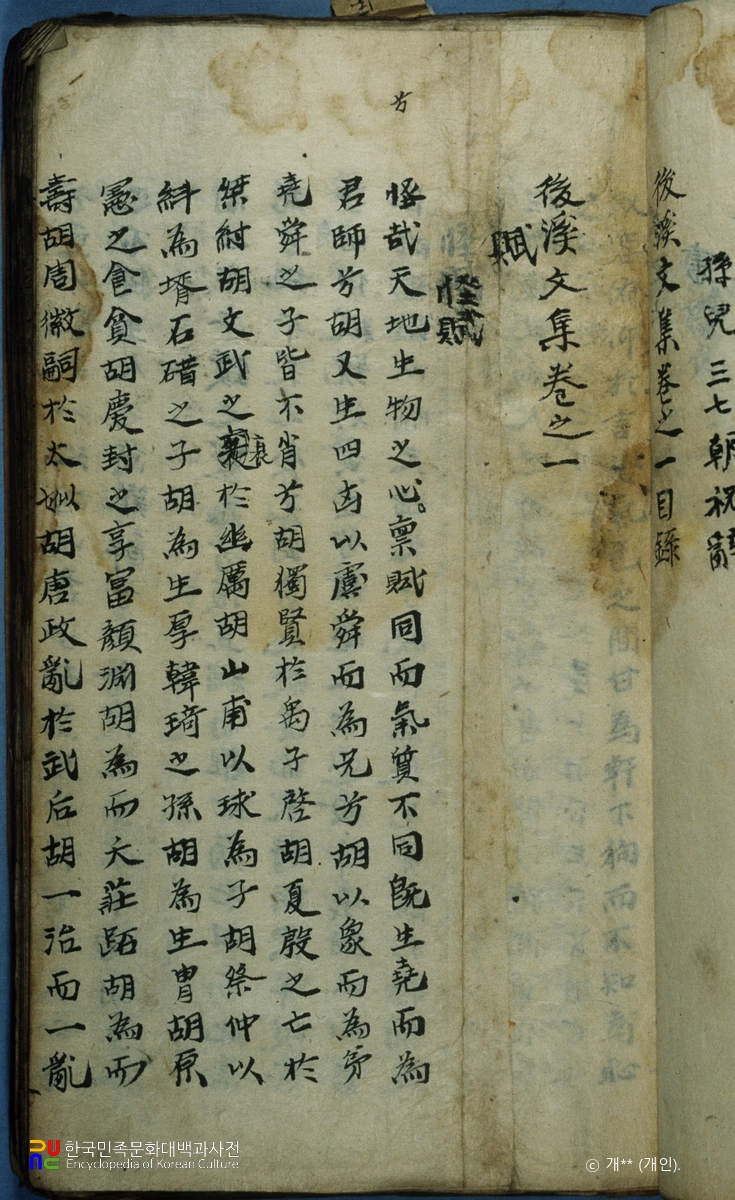 孫兒三七朝祝辭
後溪文集卷之一目錄
後溪文集卷之一
賦
怪賦
兮
怪哉天地生物之心禀賦同而氣質不同旣生堯而為
君師兮胡又生四凶以虞舜而為兄兮胡以象而為弟
堯舜之子皆不肖兮胡獨賢於禹子啓胡夏殷之亡於
桀紂胡文武之衰於幽厲胡山甫以球為子胡祭仲以
糾為壻石碏之子胡為生厚韓琦之孫胡為生胄胡原
憲之食貧胡慶封之享富顏淵胡為而夭莊蹈胡為而
壽胡周徽嗣於太姒胡唐政亂於武后胡一治而一亂
한국민족문화대백과사전
Encyclopedia of Korean Culture
ⓒ 개** (개인).